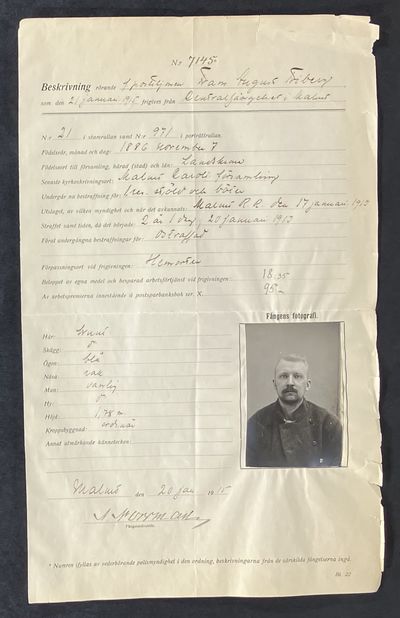 N:r 7145
Beskrivning rörande Frans August Friberg
som den 21 januari 1915 frigives från Centralfängelset i Malmö
N:r 21 i stamrullan samt N:r 971 i porträttrullan.
Födelseår, månad och dag: 1886 November 7
Födelseort till församling, härad (stad) och län: Landskrona
Senaste kyrkoskrivningsort: Malmö Caroli församling
Undergår nu bestraffning för: stöld och böter
Utslaget, av vilken myndighet och när det avkunnats: Malmö R. R. den 17 januari 1913
Straffet samt tiden, då det började: 2 år 1 dag, 20 januari 1913
Förut undergångna bestraffningar för: Ostraffad
Förpassningsort vid frigivningen: Hemorten
Beloppet av egna medel och besparad arbetsförtjänst vid frigivningen: 18:35
Av arbetspremierna innestående å postsparbanksbok ser. X. 95:-
Fångens fotografi.
Hår:
Skägg:
Ögon: blå
Näsa: rak
Mun: vanlig
Hy:
Höjd: 1,78 m
Kroppsbyggnad: ordinär
Annat utmärkande kännetecken:
Malmö den 20 jan 1915
Fängelsedirektör.
* Numren ifyllas av vederbörande polismyndighet i den ordning, beskrivningarna från de särskilda fängelserna ingå.
Bl. 22